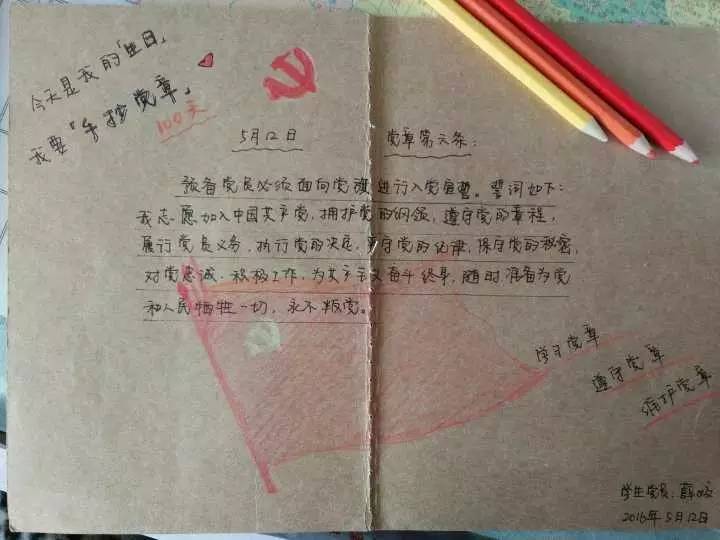 今天是我的「生日」
我要「手抄党章」
100天
5月12日
党章第六条:
预备党员必须面向党旗进行入党宣誓。誓词如下:
我志愿加入中国共产党,拥护党的纲领,遵守党的章程,
履行党员义务,执行党的决定,严守党的纪律,保守党的秘密,
对党忠诚,积极工作,为共产主义奋斗终身,随时准备为党
和人民牺牲一切,永不叛党。
学习党章
遵守党章
维护党章
学生党员:薛
2016年5月12日